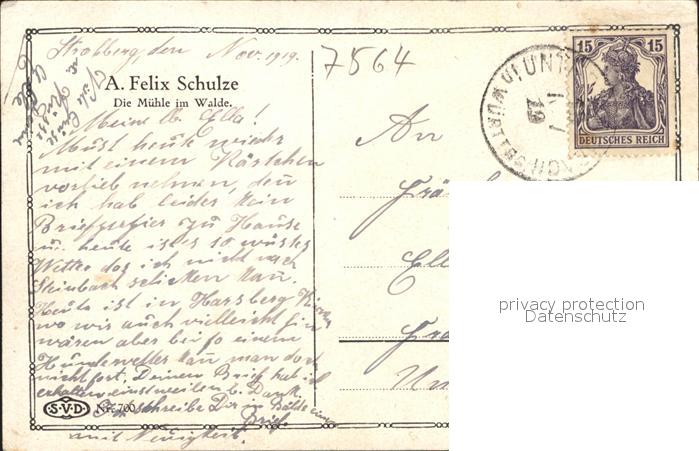 Nov. 1919.
7564
A. Felix Schulze
Die Mühle im Walde.
Meine lb. Ella!
Must heute wieder
mit einem Kärtchen
vorlieb nehmen, den
ich hab leider kein
Briefpapier zu Hause
u. heute ist's so wüstes
Wetter das ich nicht nach
Steinbach schicken kan.
Heute ist in Harsberg
wo wir auch vielleicht hin
wären aber bei so einem
Hundewetter kan man doch
nicht fort. Deinen Brief hab ich
erhalten einstweilen b. Dank.
schreibe Dir in Bälde ein
Brief
mit Neuigkeit.
S.V.D. Nr. 700
An
15 15
DEUTSCHES REICH
privacy protection
Datenschutz